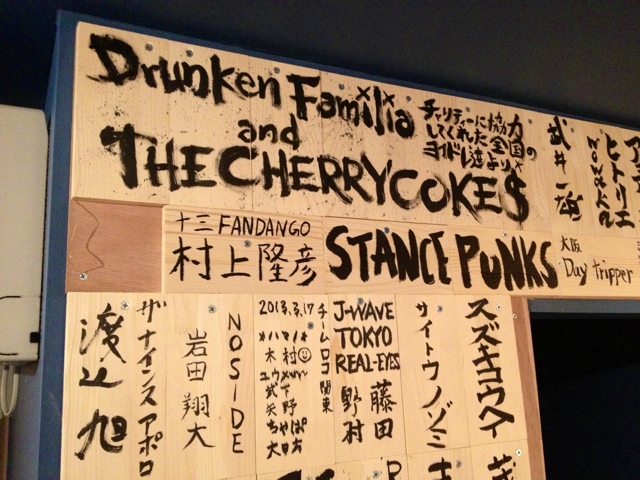 Drunken Familia
and
THE CHERRYCOKE$
チャリティーに協力
してくれた全国の
ヨイドレ達より
武井
ヒトリエ
十三 FANDANGO
村上隆彦
STANCE PUNKS
大阪
Day tripper
渡辺旭
ザ ナインス アポロ
岩田翔大
NOSIDE
2013.3.17
チームロコ関東
J-WAVE
TOKYO
REAL-EYES
藤田
野村
サイトウノゾミ
スズキコウヘイ